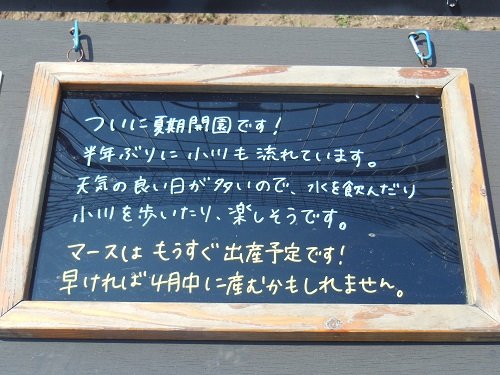 ついに夏期開園です!
半年ぶりに小川も流れています。
天気の良い日が多いので、水を飲んだり
小川を歩いたり、楽しそうです。
マースはもうすぐ出産予定です!
早ければ4月中に産むかもしれません。